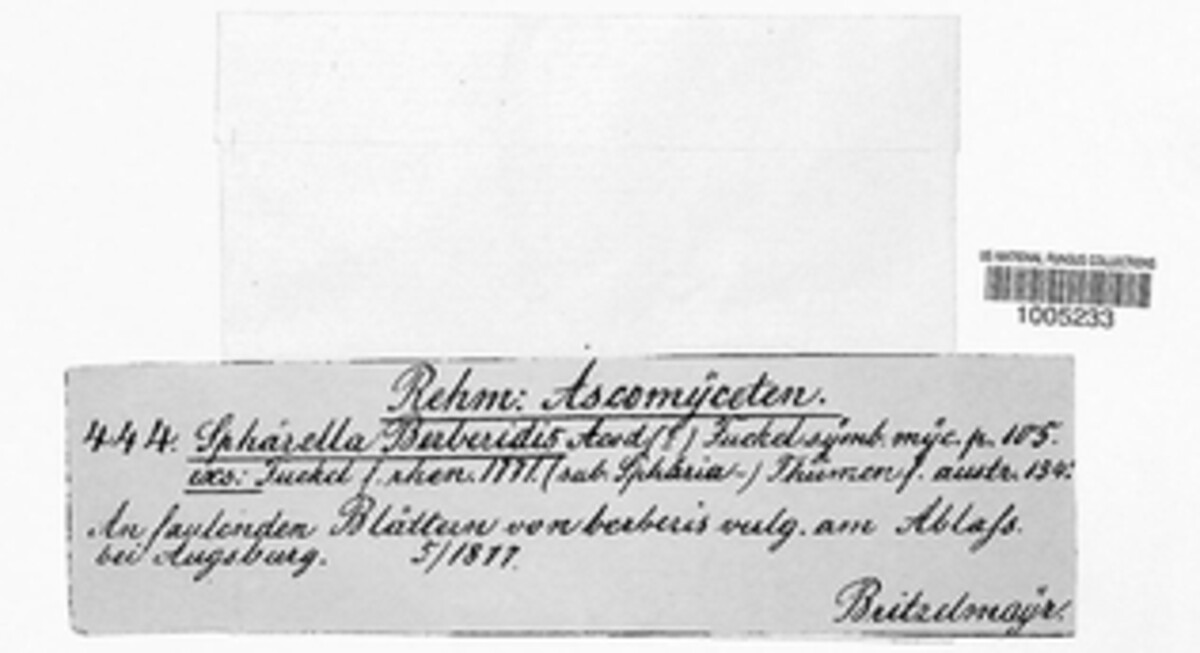 US NATIONAL FUNGUS COLLECTIONS
1005233
Rehm: Ascomÿceten.
444. Sphärella Berberidis Awd (?) Fuckel sÿmb. mÿc. p. 105.
exs: Fuckel f. rhen. 1771. (sub. Sphäria-) Thümen f. austr. 134.
An faulenden Blättern von berberis vulg. am Ablaſs.
bei Augsburg. 5/1877.
Britzelmaÿr.